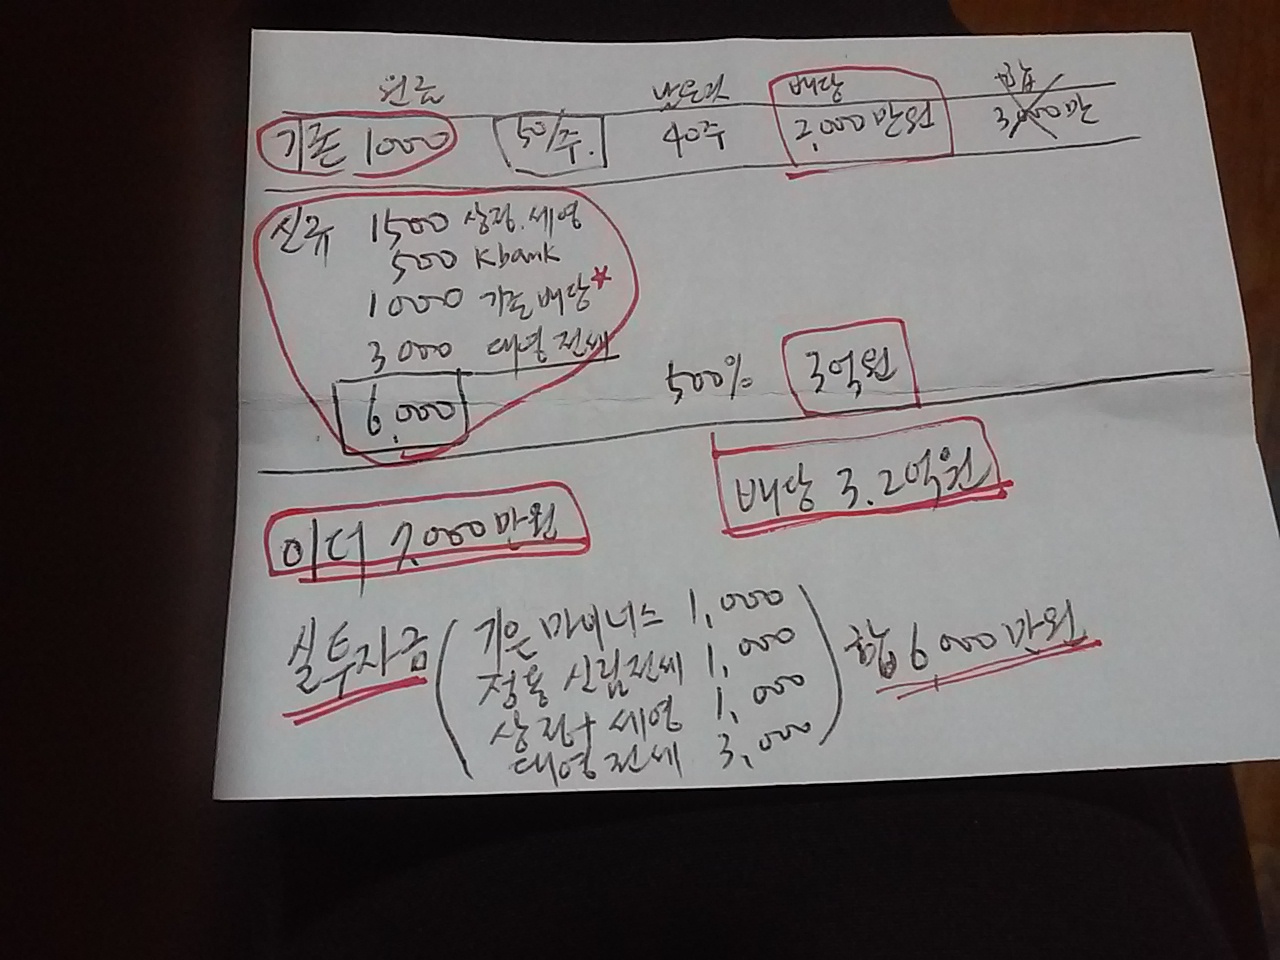 원금 남은것 배당
기존 1000 50/주. 40주 2,000만원
신규 1500 상장.세영
500 Kbank
1000 기존배당*
3000 대영전세
6,000 500% 3억원
이더 7,000만원 배당 3.2억원
실투자금 ( 기은 마이너스 1,000
정웅 신림전세 1,000
상장+세영 1,000
대영전세 3,000 ) 합 6000만원